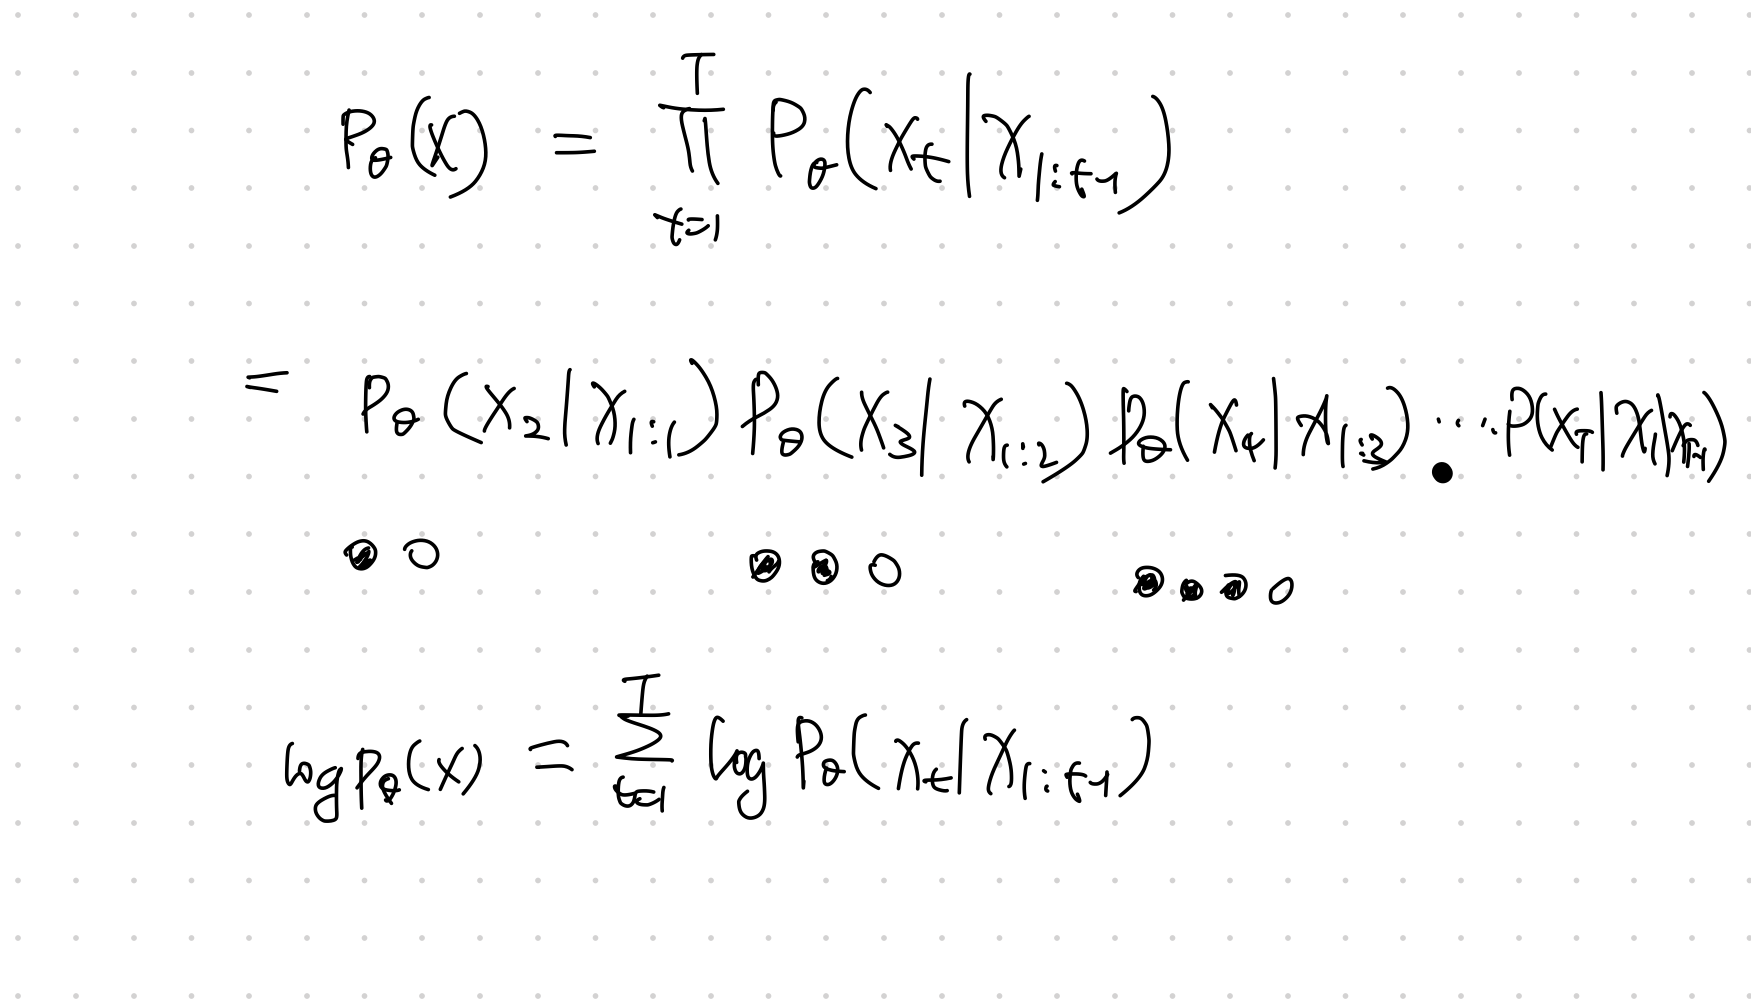 P_θ(x) = ∏_{t=1}^{T} P_θ(x_t | x_{1:t-1})
= P_θ(x_2 | x_{1:1}) P_θ(x_3 | x_{1:2}) P_θ(x_4 | x_{1:3}) ⋯ P(x_T | x_1
log P_θ(x) = ∑_{t=1}^{T} log P_θ(x_t | x_{1:t-1})